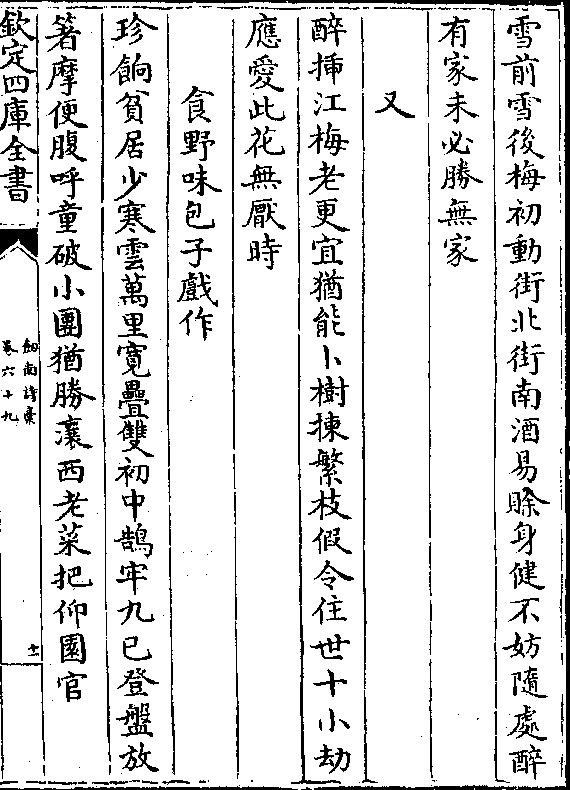 雪前雪後梅初動街北街南酒易賒身健不妨隨處醉
有家未必勝無家
又
醉揷江梅老更宜猶能卜樹揀繁枝假令住世十小劫
應愛此花無厭時
食野味包子戲作
珍餉貧居少寒雲萬里寛疊雙初中鵠牢九已登盤放
箸摩便腹呼童破小團猶勝瀼西老菜把仰園官
欽定四庫全書
劒南詩稾
卷六十九
十二